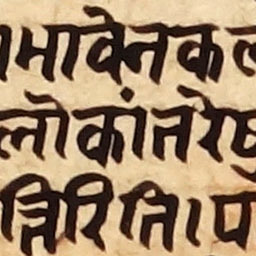 मावेनकल
लोकांतरेषु
त्तिरिति।प